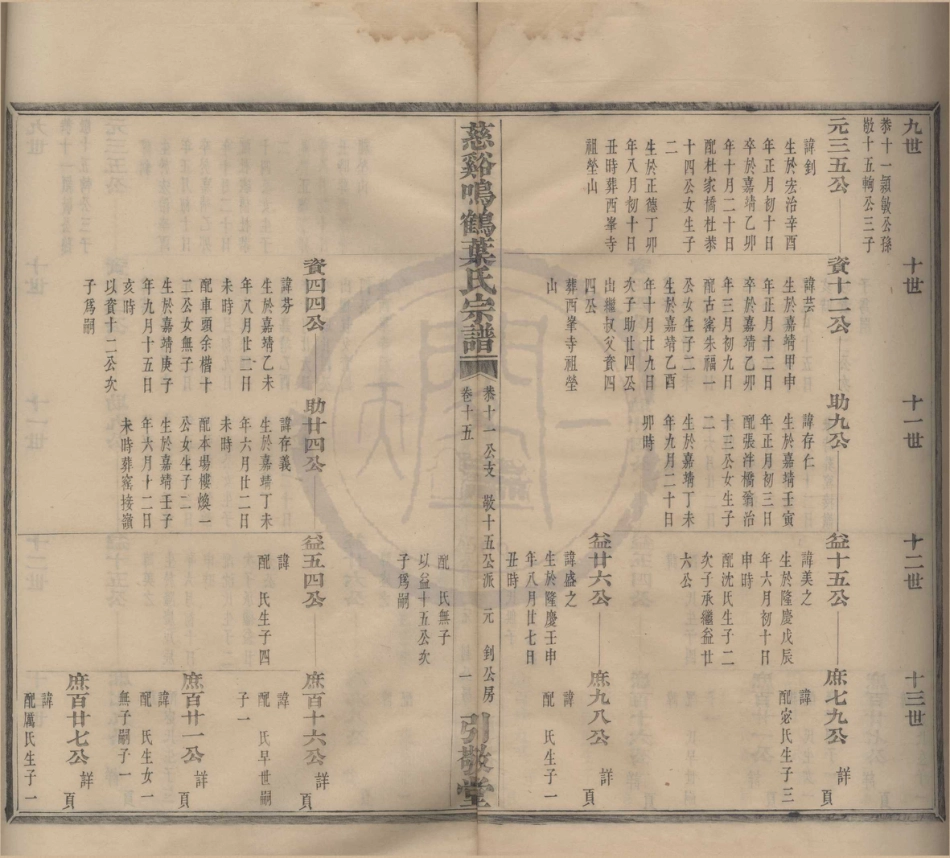 九世
十世
十一世
十二世
十三世
恭十一穎敏公孫
敬十五轉公三子
元三五公
諱釗
生於宏治辛酉
年正月初十日
卒於嘉靖乙卯
年十月二十日
配杜家橋杜恭
十四公女生子
二
生於正德丁卯
年八月初十日
丑時葬西峯寺
祖塋山
資十二公
諱芸
生於嘉靖甲申
年正月十二日
卒於嘉靖乙卯
年三月初九日
配古窰朱福一
公女生子二
生於嘉靖乙酉
年十月廿九日
次子助廿四公
出繼叔父資四
四公
葬西峯寺祖塋
山
助九公
諱存仁
生於嘉靖壬寅
年正月初三日
配張泮橋翁治
十三公女生子
二
生於嘉靖丁未
年九月二十日
卯時
益十五公
諱美之
生於隆慶戊辰
年六月初十日
申時
配沈氏生子二
次子承繼益廿
六公
庶七九公 詳 頁
諱
配宓氏生子三
益廿六公
諱盛之
生於隆慶壬申
年八月廿七日
丑時
庶九八公 詳 頁
諱
配 氏生子一
慈谿鳴鶴葉氏宗譜
卷十五
恭十一公支 敬十五公派 元 釗公房
一
引敬堂
配 氏無子
以益十五公次
子爲嗣
資四四公
諱芬
生於嘉靖乙未
年八月廿二日
未時
配車頭余楷十
二公女無子
生於嘉靖庚子
年九月十五日
亥時
以資十二公次
子爲嗣
助廿四公
諱存義
生於嘉靖丁未
年六月廿二日
未時
配本場樓煥一
公女生子二
生於嘉靖壬子
年六月十二日
未時葬窰接嶺
益五四公
諱
配 氏生子四
庶百十六公 詳 頁
諱
配 氏早世嗣
子一
庶百廿一公 詳 頁
諱
配 氏生女一
無子嗣子一
庶百廿七公 詳 頁
諱
配厲氏生子一